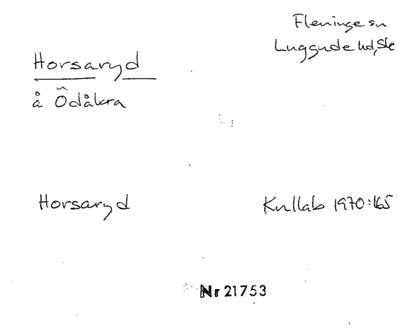 Fleninge sn
Luggude hd, Sk
Horsaryd
å Ödåkra
Horsaryd
Kullab 1970:165
Nr 21753